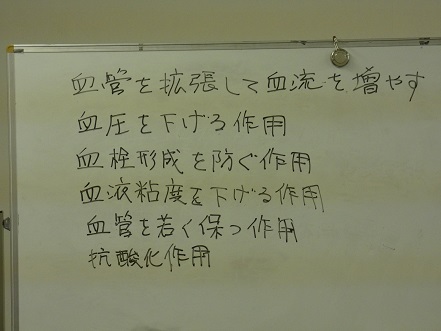 血管を拡張して血流を増やす
血圧を下げる作用
血栓形成を防ぐ作用
血液粘度を下げる作用
血管を若く保つ作用
抗酸化作用